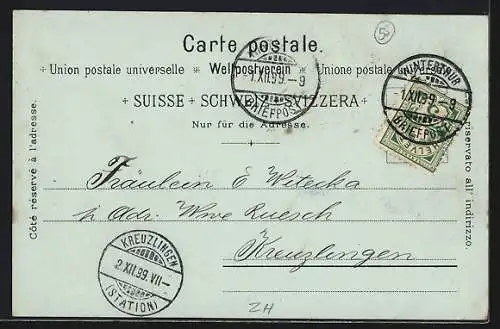 5
Carte postale.
Union postale universelle Weltpostverein Unione postale
+ SUISSE + SCHWEIZ + SVIZZERA +
Nur für die Adresse.
Côté réservé à l'adresse.
riservato all' indirizzo.
1.XII.99.-9
BRIEFPOST
WINTERTHUR
-1.XII.99.-9
BRIEFPOST
HELVE
Fräulein E Witecka
p. Adr. Wwe Ruesch
Kreuzlingen
KREUZLINGEN
2.XII.99.VII-
(STATION)
ZH